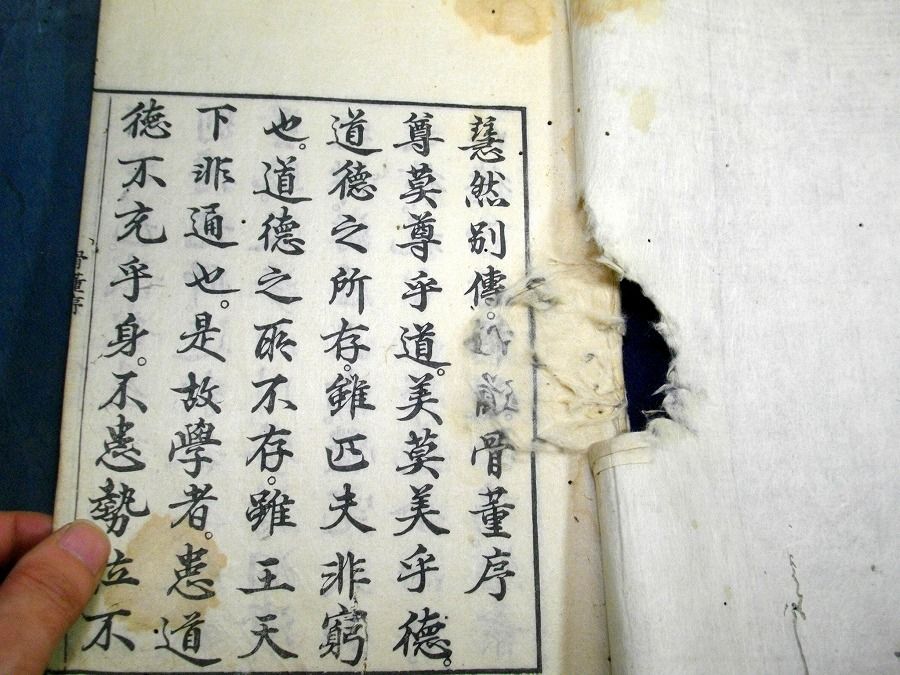 慧然別傳。骨董序
尊莫尊乎道。美莫美乎德。
道德之所存。雖匹夫非窮
也。道德之所不存。雖王天
下非通也。是故學者。患道
德不充乎身。不患勢位不
骨董序